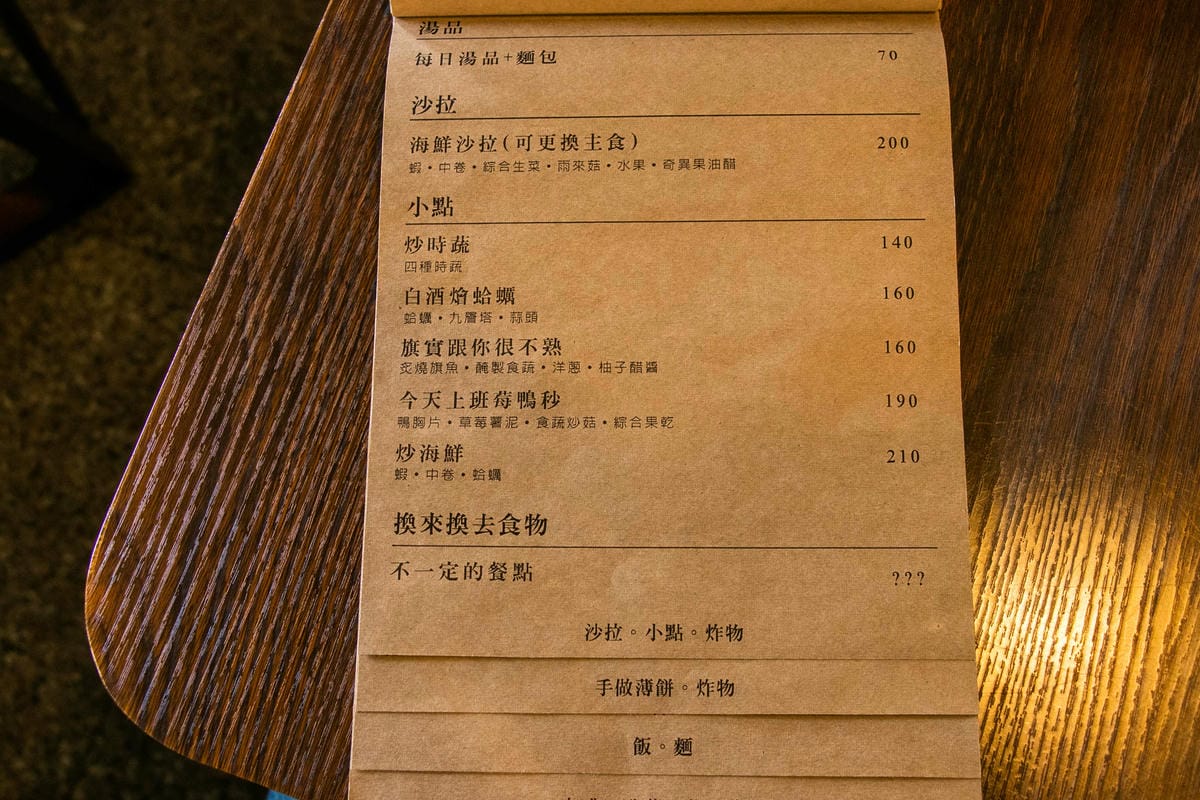 湯品
每日湯品+麵包 70
沙拉
海鮮沙拉(可更換主食) 200
蝦•中卷•綜合生菜•雨來菇•水果•奇異果油醋
小點
炒時蔬 140
四種時蔬
白酒燴蛤蠣 160
蛤蠣•九層塔•蒜頭
旗實跟你很不熟 160
炙燒旗魚•醃製食蔬•洋蔥•柚子醋醬
今天上班莓鴨秒 190
鴨胸片•草莓薯泥•食蔬炒菇•綜合果乾
炒海鮮 210
蝦•中卷•蛤蠣
換來換去食物
不一定的餐點 ???
沙拉。小點。炸物
手做薄餅。炸物
飯。麵